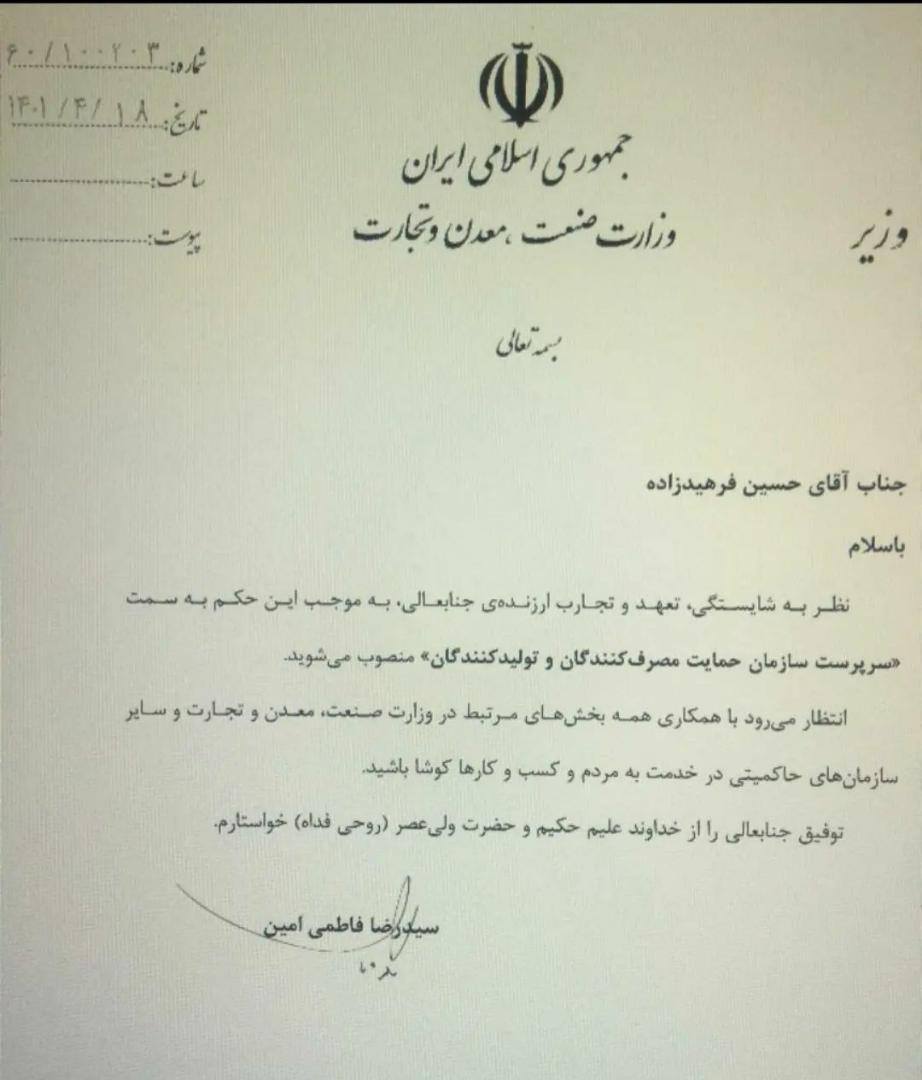 شماره: ۶۰/۱۰۰۲۰۳
تاریخ: ۱۴۰۱/۴/۱۸
ساعت:
پیوست:
جمهوری اسلامی ایران
وزارت صنعت، معدن و تجارت
وزیر
بسمه تعالی
جناب آقای حسین فرهیدزاده
باسلام
نظر به شایستگی، تعهد و تجارب ارزنده‌ی جنابعالی، به موجب این حکم به سمت
«سرپرست سازمان حمایت مصرف‌کنندگان و تولیدکنندگان» منصوب می‌شوید.
انتظار می‌رود با همکاری همه بخش‌های مرتبط در وزارت صنعت، معدن و تجارت و سایر
سازمان‌های حاکمیتی در خدمت به مردم و کسب و کارها کوشا باشید.
توفیق جنابعالی را از خداوند علیم حکیم و حضرت ولی‌عصر (روحی فداه) خواستارم.
سیدرضا فاطمی امین